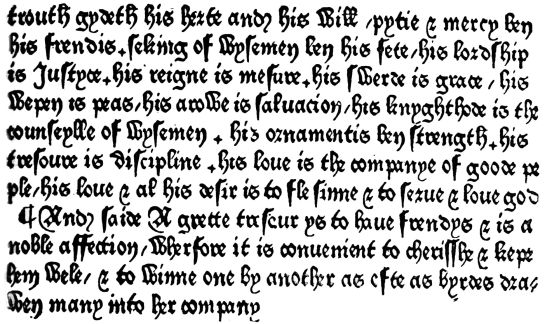 trouth gydeth his herte and his will / pytie & mercy ben
his frendis. seking of wysemen ben his fete / his lordship
is Justyce. his reigne is mesure. his swerde is grace / his
wepen is peas / his arowe is saluacion / his knyghthode is the
counseylle of wysemen . his ornamentis ben strength. his
tresoure is discipline . his loue is the companye of goode pe
ple / his loue & al his desir is to fle sinne & to serue & loue god
¶ And saide A grette tresour ys to haue frendys & is a
noble affection / wherfore it is conuenient to cherisshe & kepe
hem wele / & to winne one by another as ofte as byrdes dra-
wen many into her company